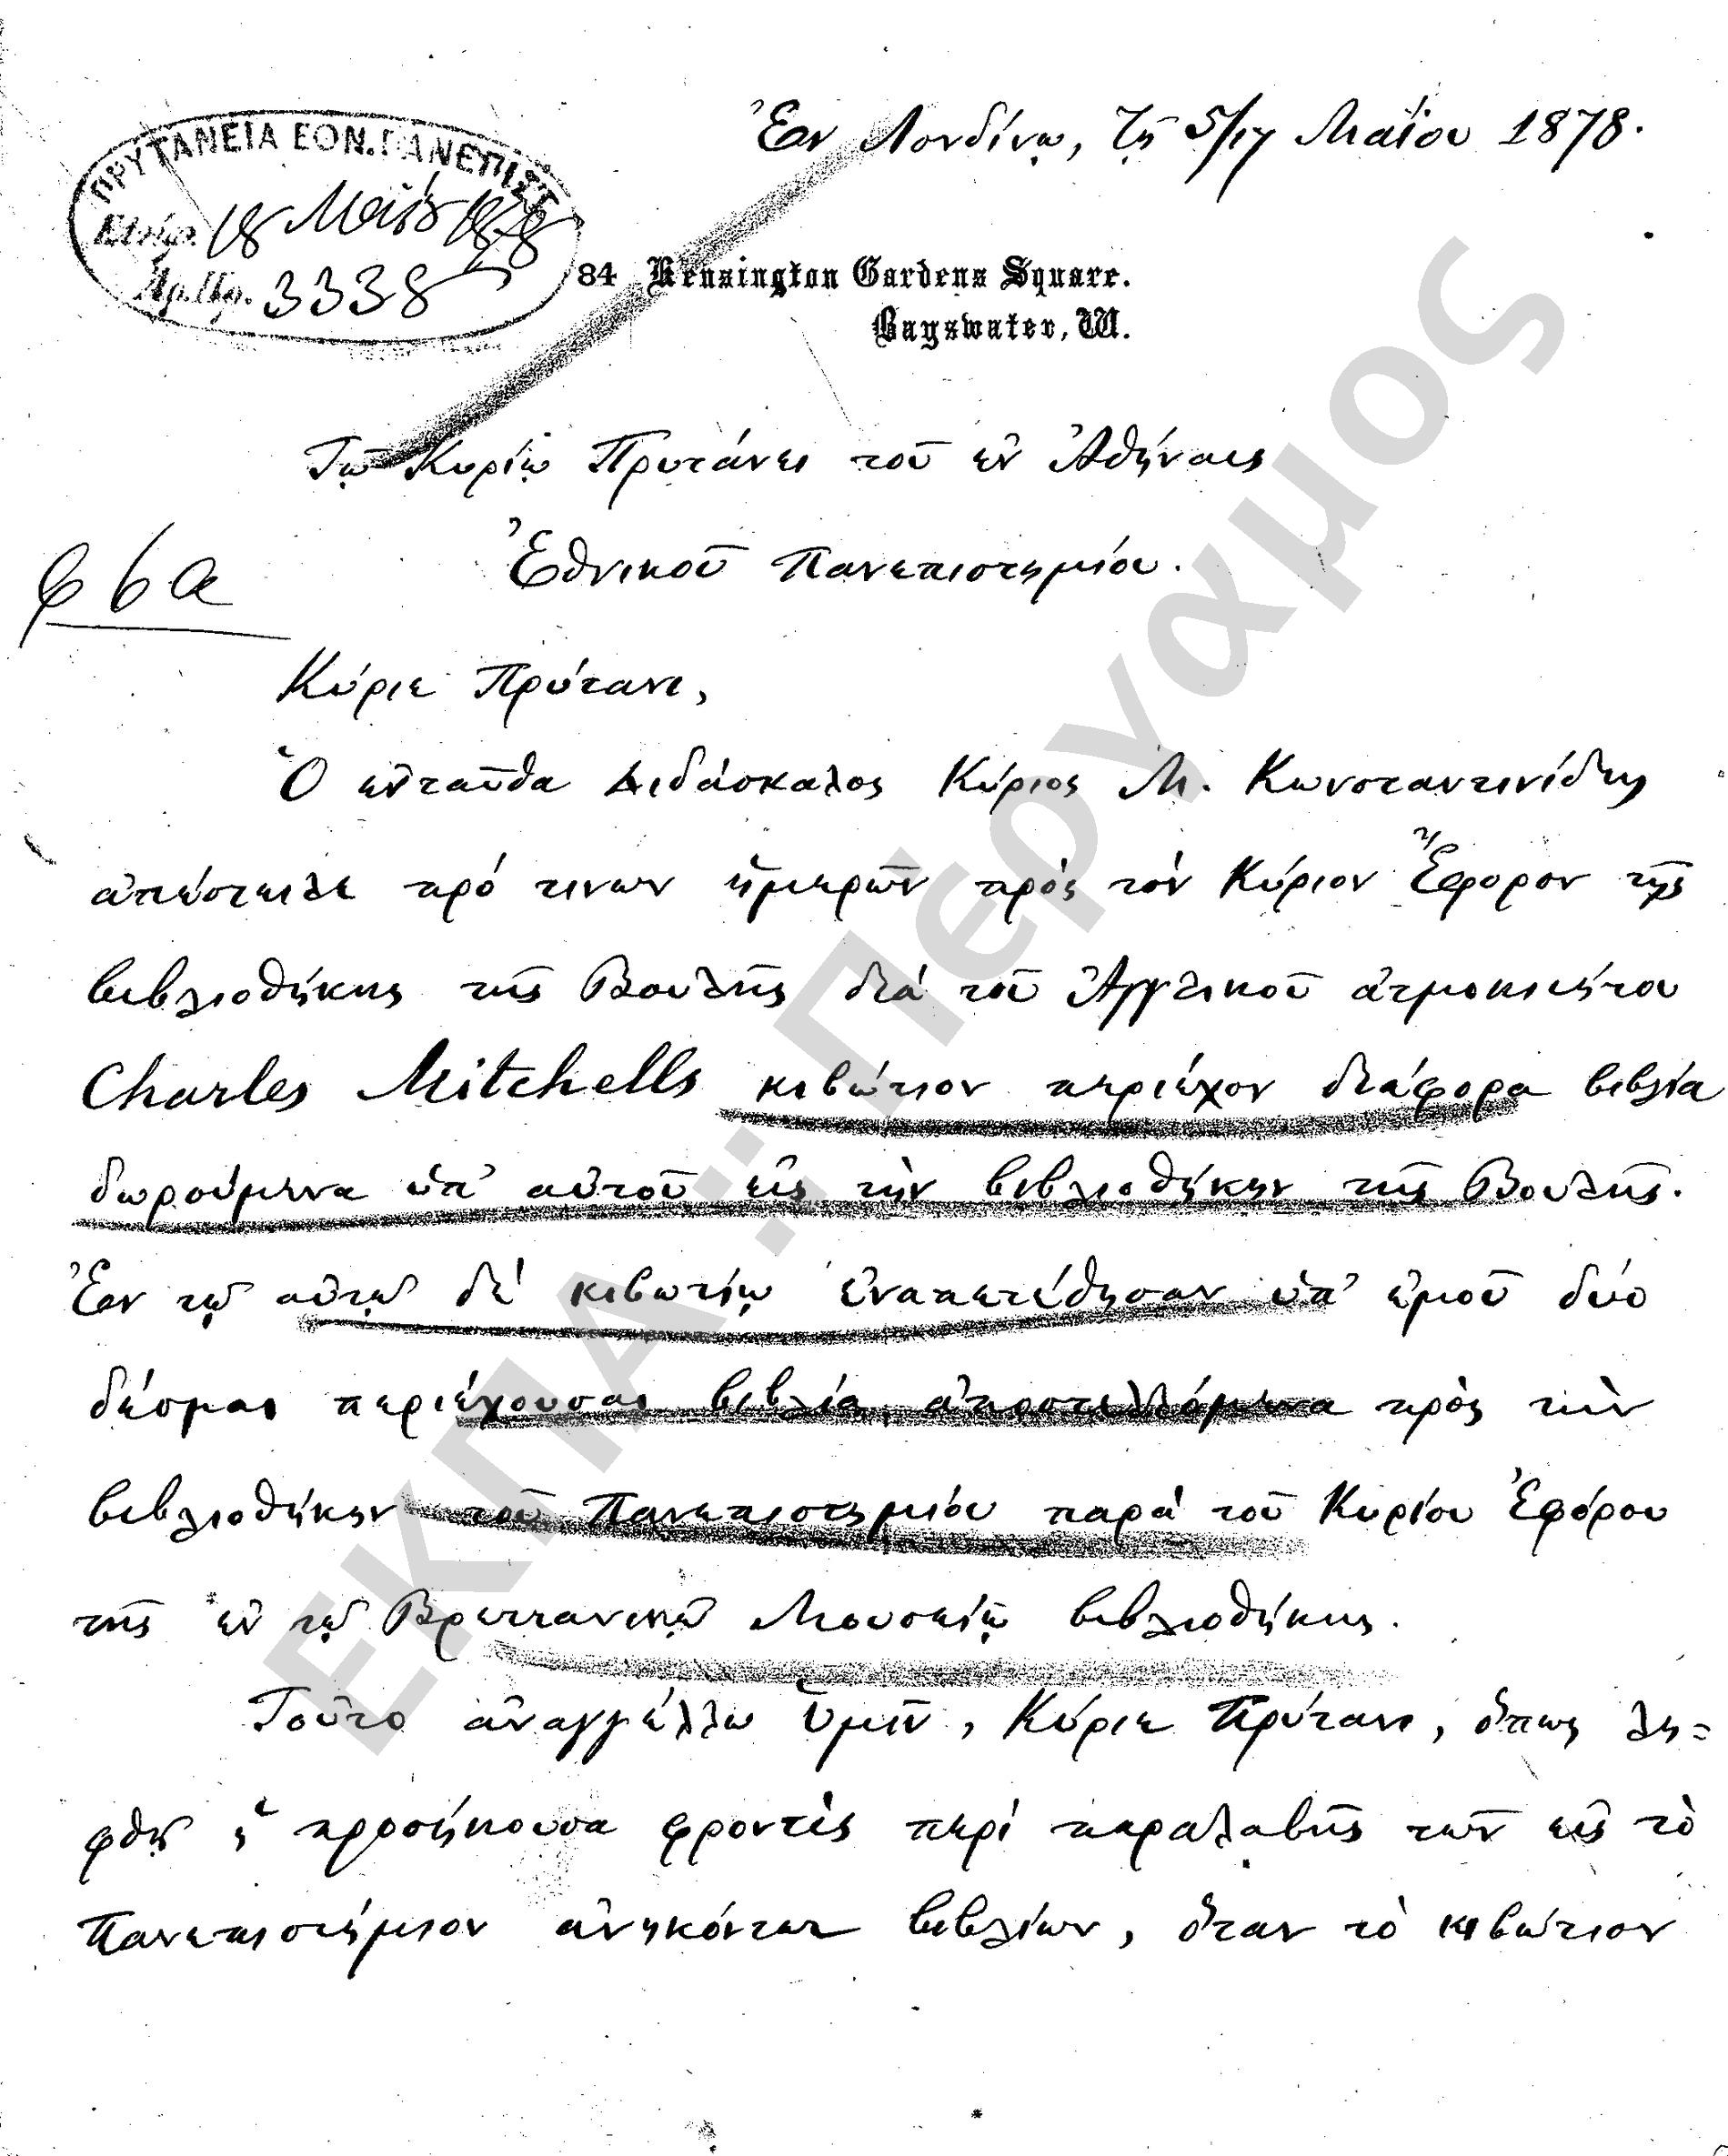 Ἐν Λονδίνῳ, τῇ 5/17 Μαΐου 1878.
ΠΡΥΤΑΝΕΙΑ ΕΘΝ. ΠΑΝΕΠΙΣΤ
18 Μαΐου 1878
3338
84 Kensington Gardens Square.
Bayswater, W.
Τῷ Κυρίῳ Πρυτάνει τοῦ ἐν Ἀθήναις
Ἐθνικοῦ Πανεπιστημίου.
φ 6α
Κύριε Πρύτανι,
Ὁ ἐνταῦθα Διδάσκαλος Κύριος Μ. Κωνσταντινίδης
ἀπέστειλε πρό τινων ἡμερῶν πρὸς τὸν Κύριον Ἔφορον τῆς
βιβλιοθήκης τῆς Βουλῆς διὰ τοῦ Ἀγγλικοῦ ἀτμοκινήτου
Charles Mitchells κιβώτιον περιέχον διάφορα βιβλία
δωρούμενα ὑπ' αὐτοῦ εἰς τὴν βιβλιοθήκην τῆς Βουλῆς.
Ἐν τῷ αὐτῷ δὲ κιβωτίῳ ἐναπετέθησαν ὑπ' ἐμοῦ δύο
δέσμαι περιέχουσαι βιβλία, ἀποστελλόμενα πρὸς τὴν
βιβλιοθήκην τοῦ Πανεπιστημίου παρὰ τοῦ Κυρίου Ἐφόρου
τῆς ἐν τῷ Βρεττανικῷ Μουσείῳ βιβλιοθήκης.
Τοῦτο ἀναγγέλλω ὑμῖν, Κύριε Πρύτανι, ὅπως λη=
φθῇ ἡ προσήκουσα φροντὶς περὶ παραλαβῆς τῶν εἰς τὸ
Πανεπιστήμιον ἀνηκόντων βιβλίων, ὅταν τὸ κιβώτιον
ΕΚΠΑ :: Πέργαμος